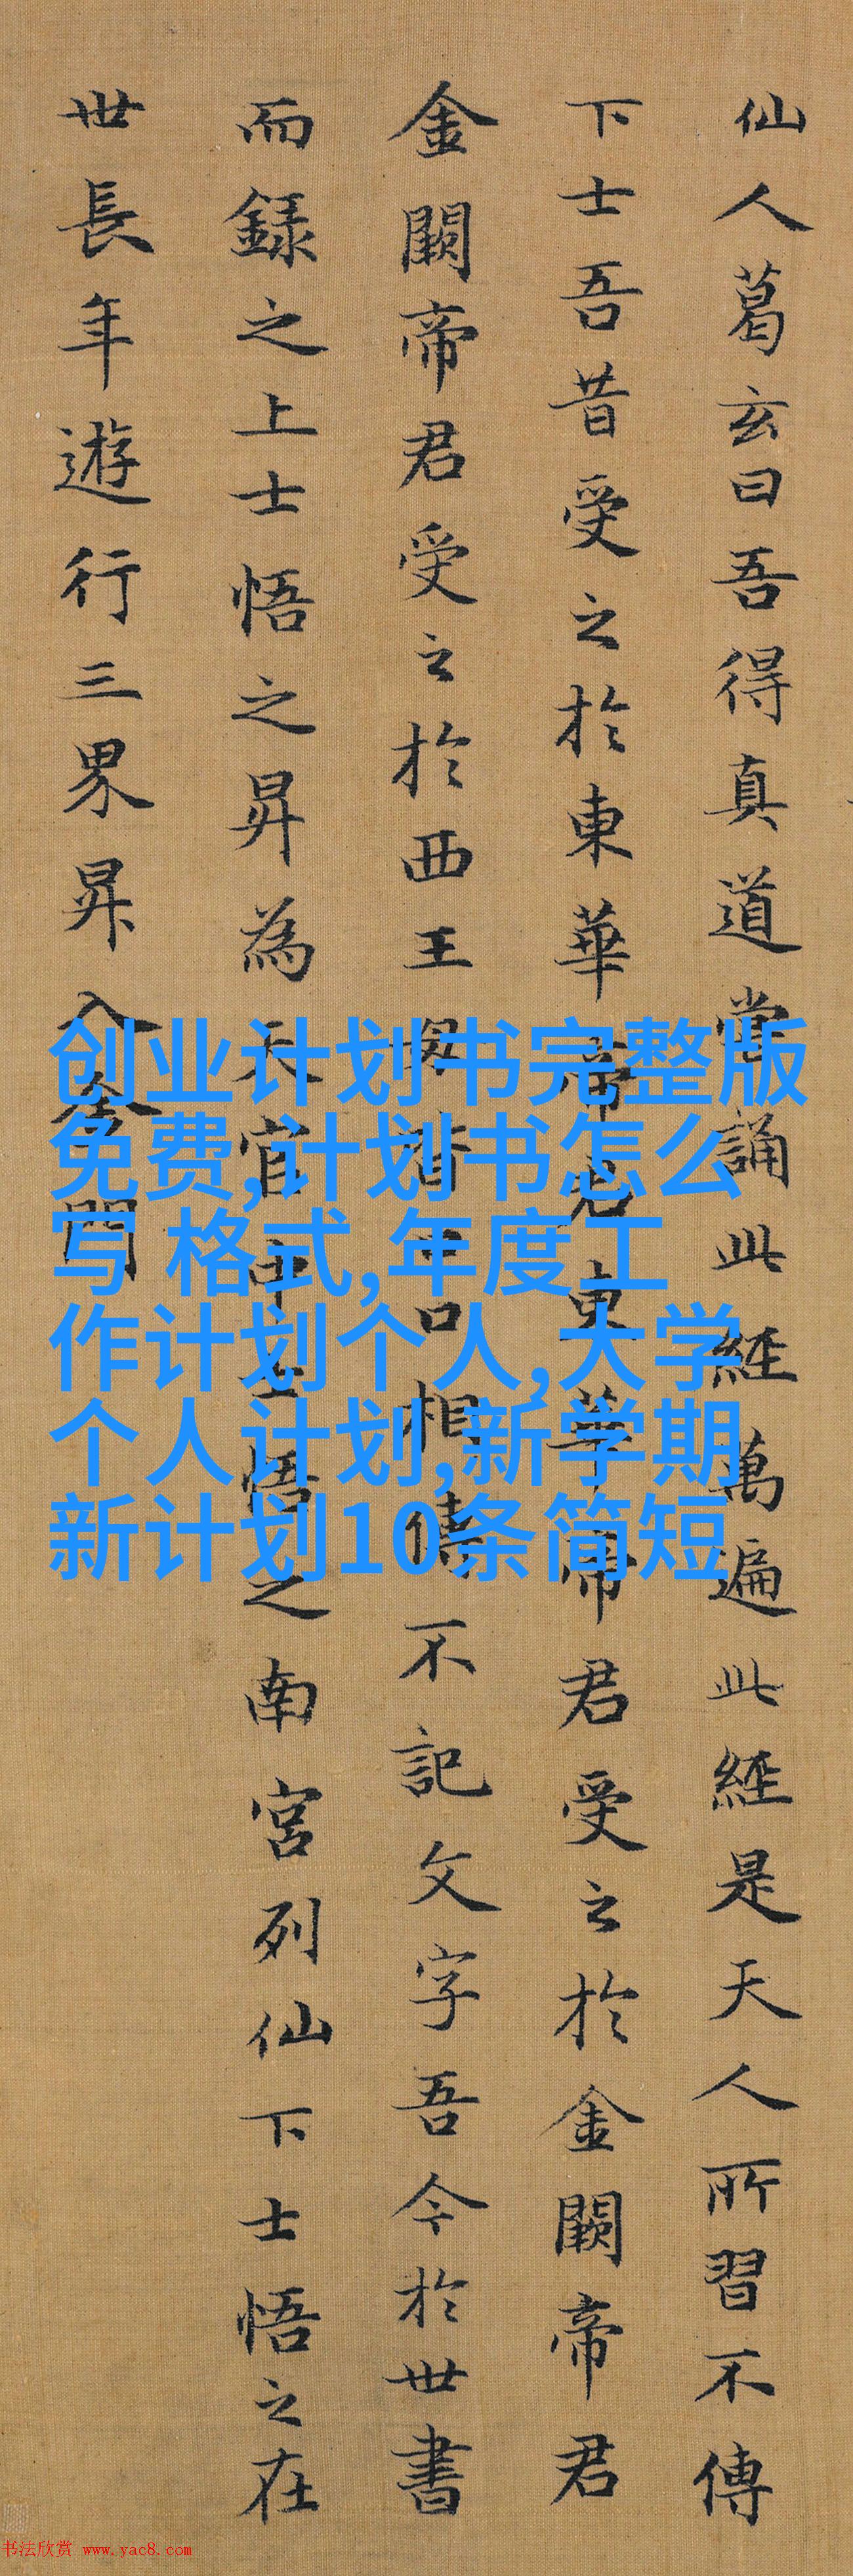 仙人葛玄曰吾得真道常誦此經萬遍此經是天人所習不傳
下士吾昔受之於東華帝君東華帝君受之於金闕帝君
金闕帝君受之於西王母皆口口相傳不記文字吾今於世書
而録之上士悟之昇為天官中士悟之南宮列仙下士悟之在
世長年遊行三界昇入金門
创业计划书完整版
免费,计划书怎么
写 格式,年度工
作计划个人,大学
个人计划,新学期
新计划10条简短
书法欣赏 www.yac8.com